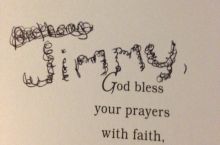 Jimmy,
God bless
your prayers
with faith,